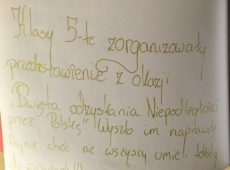 Klasy 5-te zorganizowały
przedstawienie z okazji
„Święta odzyskania Niepodległości
przez Polskę". Wyszło im naprawdę
fajnie choć nie wszyscy umieli teksty